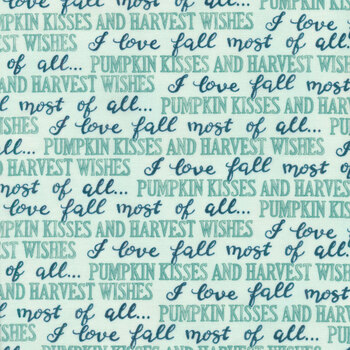 PUMPKIN KISSES AND HARVEST WISHES
HARVEST WISHES I love fall most of all.
most of all... PUMPKIN KISSES AND HARVEST
WISHES I love fall most of all...
of all... PUMPKIN KISSES AND HARVEST WISHES
AND HARVEST WISHES I love fall most
most of all... PUMPKIN KISSES AND HARVEST
HARVEST WISHES I love fall most of all...
love fall most of all... PUMPKIN KISSES
WISHES I love fall most of all.
of all... PUMPKIN KISSES AND HARVEST WISHES
HARVEST WISHES I love fall most of all.
most of all... PUMPKIN KISSES AND HARVEST
WISHES I love fall most of all...